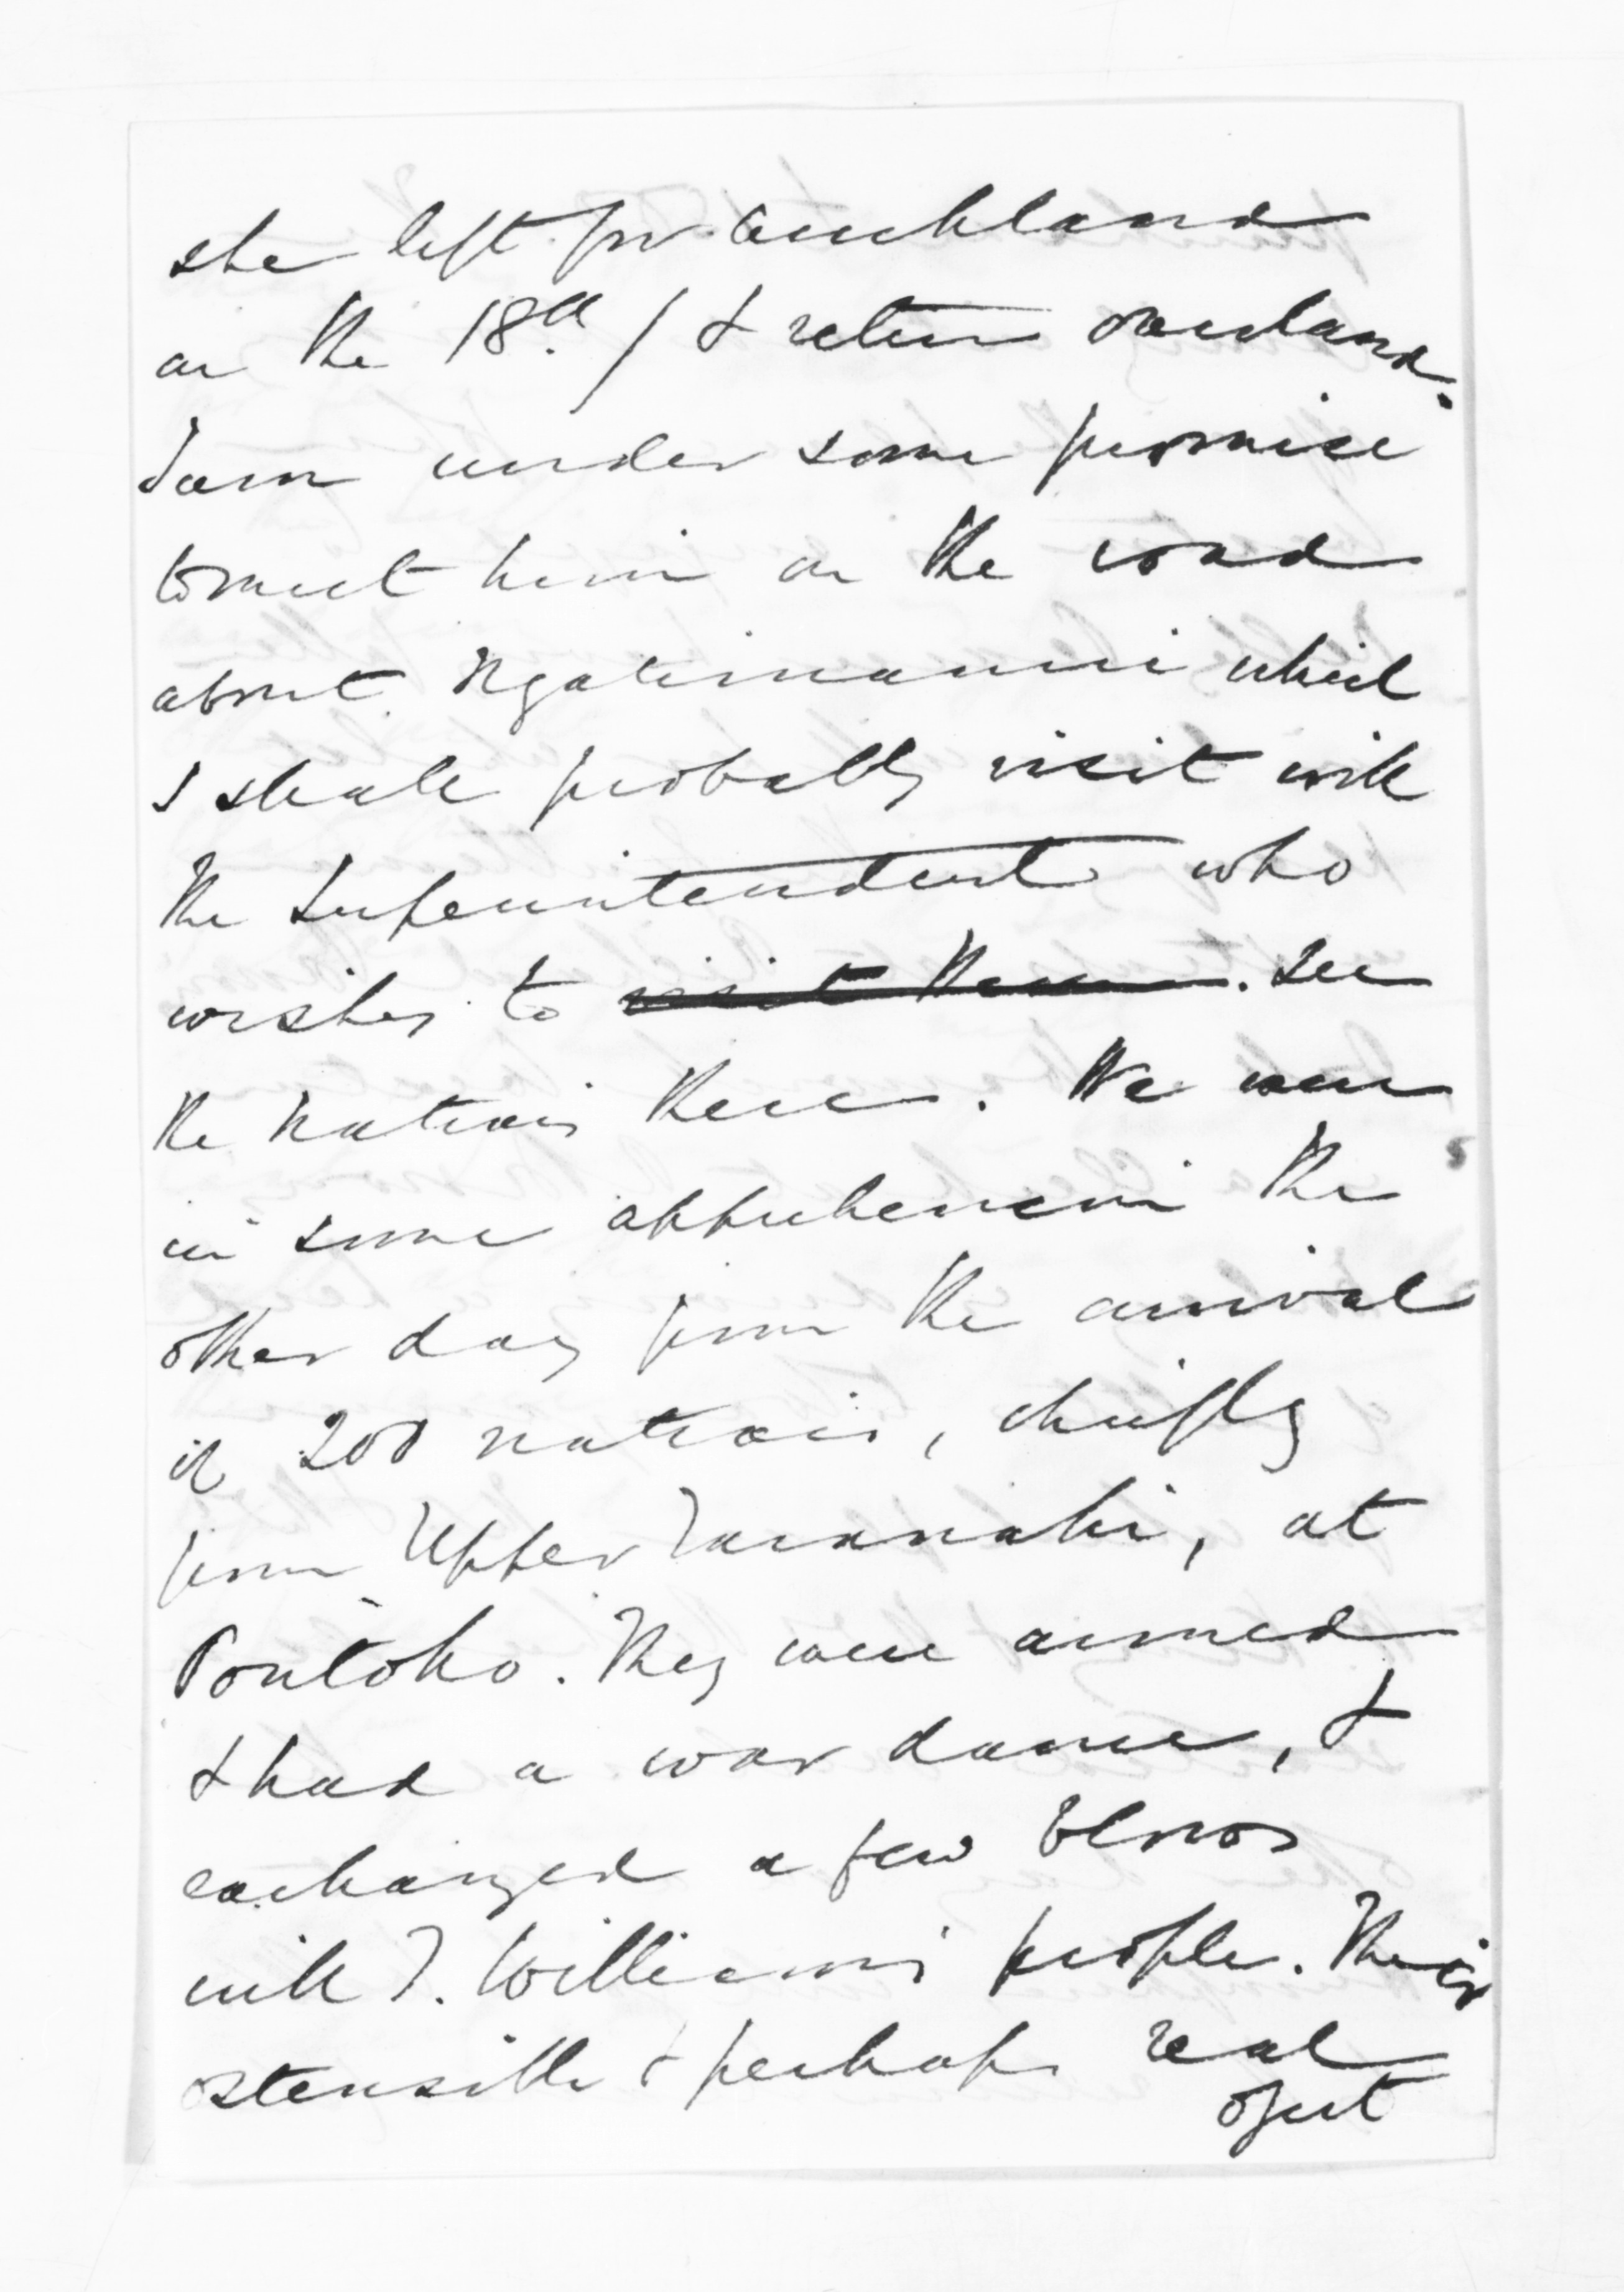 she left for Auckland
on the 18th / & return overland.
I am under some promise
to meet him on the road
about Ngatimaru which
I shall probably visit with
the Superintendent who
wishes to visit them. see
the natives there. We were
in some apprehension the
other day from the arrival
of 200 natives, chiefly
from Upper Taranaki, at
Poutoko. They were armed
& had a war dance, &
exchanged a few blows
with T. Williams' people. Their
ostensible & perhaps real
object